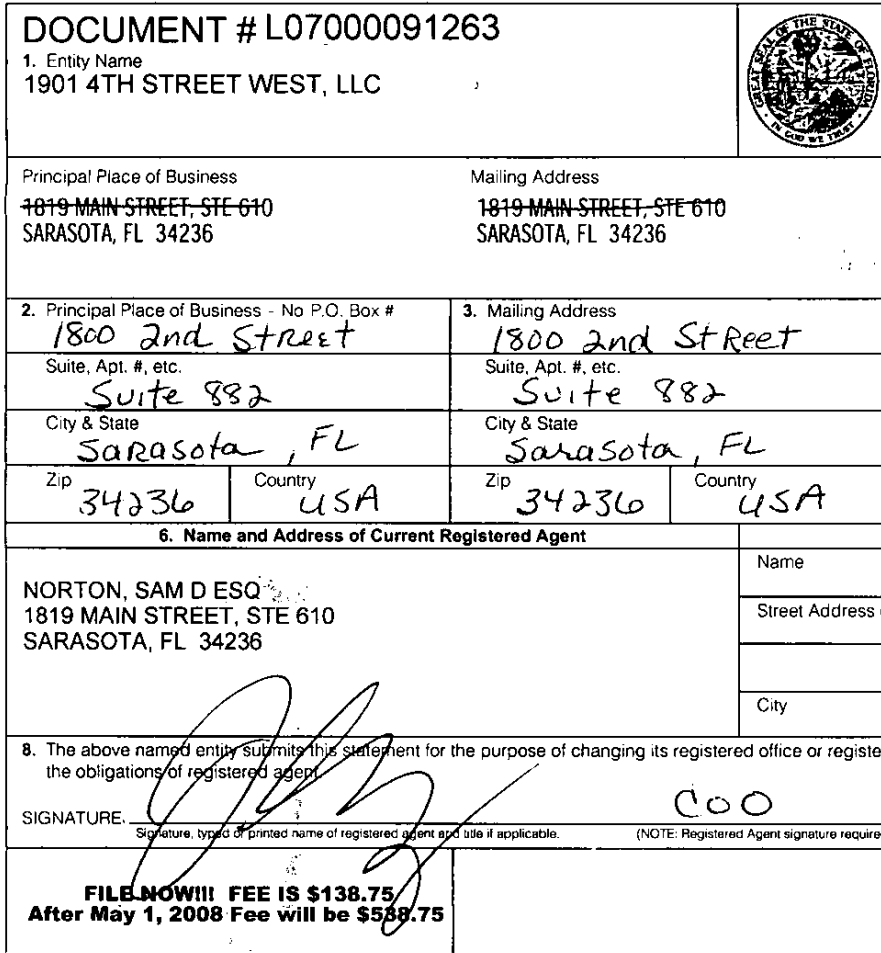 DOCUMENT # L07000091263
1. Entity Name
1901 4TH STREET WEST, LLC
GREAT SEAL OF THE STATE OF FLORIDA
IN GOD WE TRUST
Principal Place of Business
1819 MAIN STREET, STE 610
SARASOTA, FL 34236
Mailing Address
1819 MAIN STREET, STE 610
SARASOTA, FL 34236
2. Principal Place of Business - No P.O. Box #
1800 2nd Street
3. Mailing Address
1800 2nd Street
Suite, Apt. #, etc.
Suite 882
Suite, Apt. #, etc.
Suite 882
City & State
Sarasota, FL
City & State
Sarasota, FL
Zip
34236
Country
USA
Zip
34236
Country
USA
6. Name and Address of Current Registered Agent
NORTON, SAM D ESQ
1819 MAIN STREET, STE 610
SARASOTA, FL 34236
Name
Street Address
City
8. The above named entity submits this statement for the purpose of changing its registered office or registe
the obligations of registered agent.
SIGNATURE
COO
Signature, typed or printed name of registered agent and title if applicable.
(NOTE: Registered Agent signature require
FILE NOW!!! FEE IS $138.75
After May 1, 2008 Fee will be $538.75